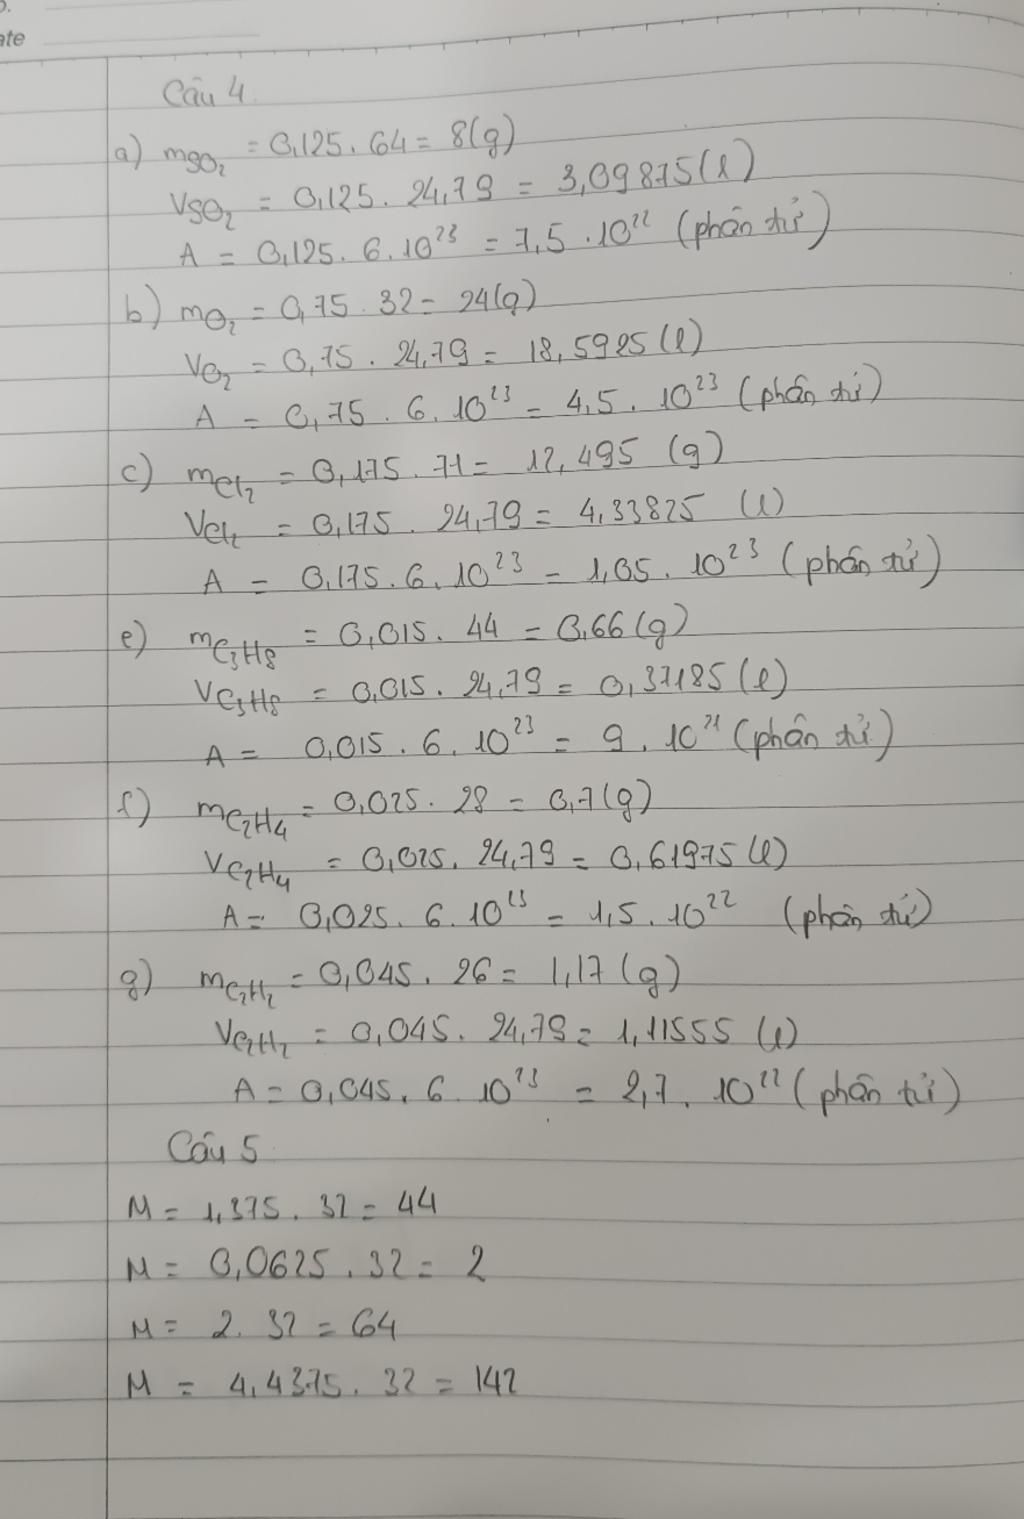 ate
Câu 4
a) mSO₂ = 0,125 . 64 = 8(g)
VSO₂ = 0,125 . 24,79 = 3,09875(l)
A = 0,125 . 6 . 10²³ = 7,5 . 10²² (phân tử)
b) mO₂ = 0,75 . 32 = 24(g)
VO₂ = 0,75 . 24,79 = 18,5925(l)
A = 0,75 . 6 . 10²³ = 4,5 . 10²³ (phân tử)
c) mCl₂ = 0,175 . 71 = 12,495 (g)
VCl₂ = 0,175 . 24,79 = 4,33825 (l)
A = 0,175 . 6 . 10²³ = 1,05 . 10²³ (phân tử)
e) mC₃H₈ = 0,015 . 44 = 0,66(g)
VC₃H₈ = 0,015 . 24,79 = 0,37185(l)
A = 0,015 . 6 . 10²³ = 9 . 10²¹ (phân tử)
f) mC₂H₄ = 0,025 . 28 = 0,7(g)
VC₂H₄ = 0,025 . 24,79 = 0,61975(l)
A = 0,025 . 6 . 10²³ = 1,5 . 10²² (phân tử)
g) mC₂H₂ = 0,045 . 26 = 1,17(g)
VC₂H₂ = 0,045 . 24,79 = 1,11555 (l)
A = 0,045 . 6 . 10²³ = 2,7 . 10²² (phân tử)
Câu 5
M = 1,375 . 32 = 44
M = 0,0625 . 32 = 2
M = 2 . 32 = 64
M = 4,4375 . 32 = 142